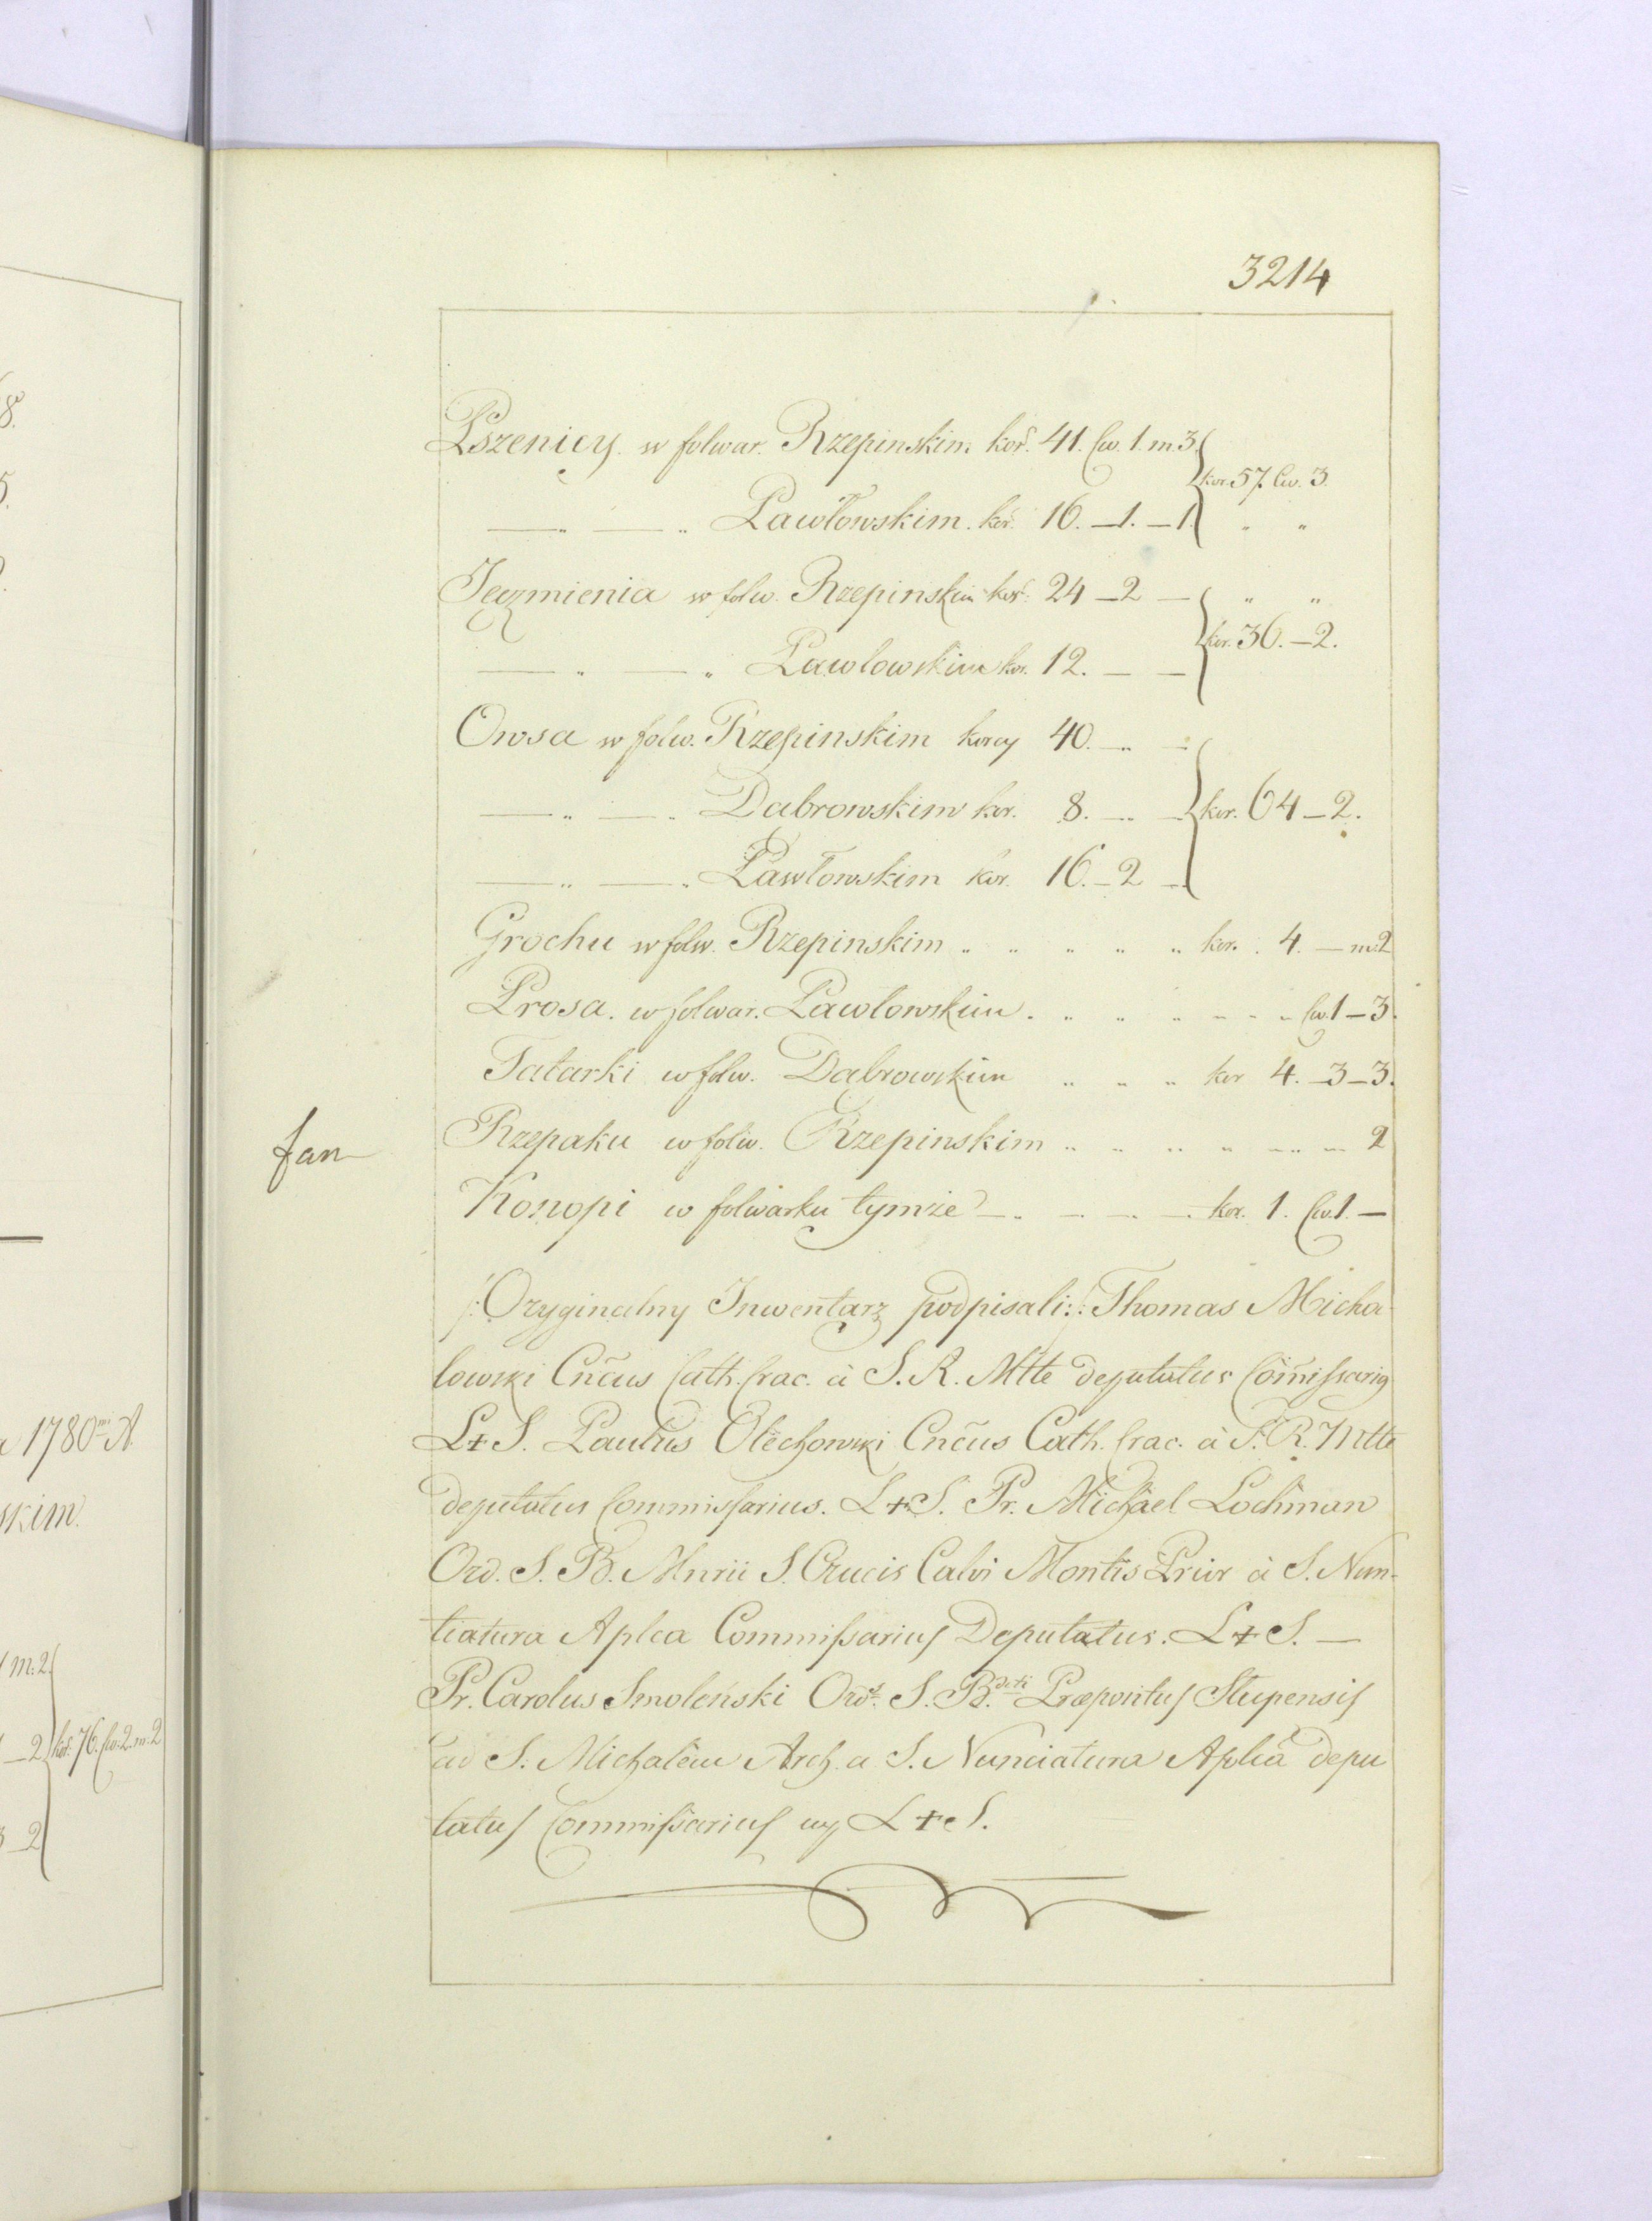 3214
Pszenicy w folwar. Rzepinskim kor. 41. Cw. 1. m. 3.
kor. 57. Cw. 3.
— „ — „ Pawłowskim. kor. 16. — 1. — 1. „ „
Jęczmienia w folw. Rzepinskim kor. 24 — 2 — „ „
kor. 36. — 2.
— „ — „ Pawlowskim kor. 12. — —
Owsa w folw. Rzepinskim korcy 40. — —
— „ — „ Dabrowskim kor. 8. — — kor. 64 — 2.
— „ — „ Pawłowskim kor. 16. — 2 —
Grochu w folw. Rzepinskim „ „ „ „ „ kor. 4. — m: 2
Prosa. w folwar. Pawlowskim. „ „ „ – – – Cw. 1 — 3.
Tatarki w folw. Dabrowskim „ „ „ kor 4. — 3 — 3.
Rzepaku w folw. Rzepinskim „ „ „ „ — — 2
fan
Konopi w folwarku tymże — . — . — . — kor. 1. Cw. 1. —
/:Oryginalny Inwentarz podpisali:/: Thomas Micha-
lowski Cñcus Cath. Crac. à S. R. Mtte deputatus Com̃issariq
L+S. Paulus Olechowski Cñcus Cath. Crac. à S. R. Mtte
deputatus Commissarius. L+S. Pr. Michael Lochman
Ord. S. B. Mnrii S. Crucis Calvi Montis Prior à S. Nun-
tiatura Aplca Commissarius Deputatus. L+S. —
Pr. Carolus Smoleński Ord. S. B. dcti Præpositus Slupensis
ad S. Michalem Arch. a S. Nunciatura Aplca depu
tatus Commissarius L+S.
1780 mi A
skim.
m: 2
— 2 kor: 76. Cw. 2. m: 2
— 2